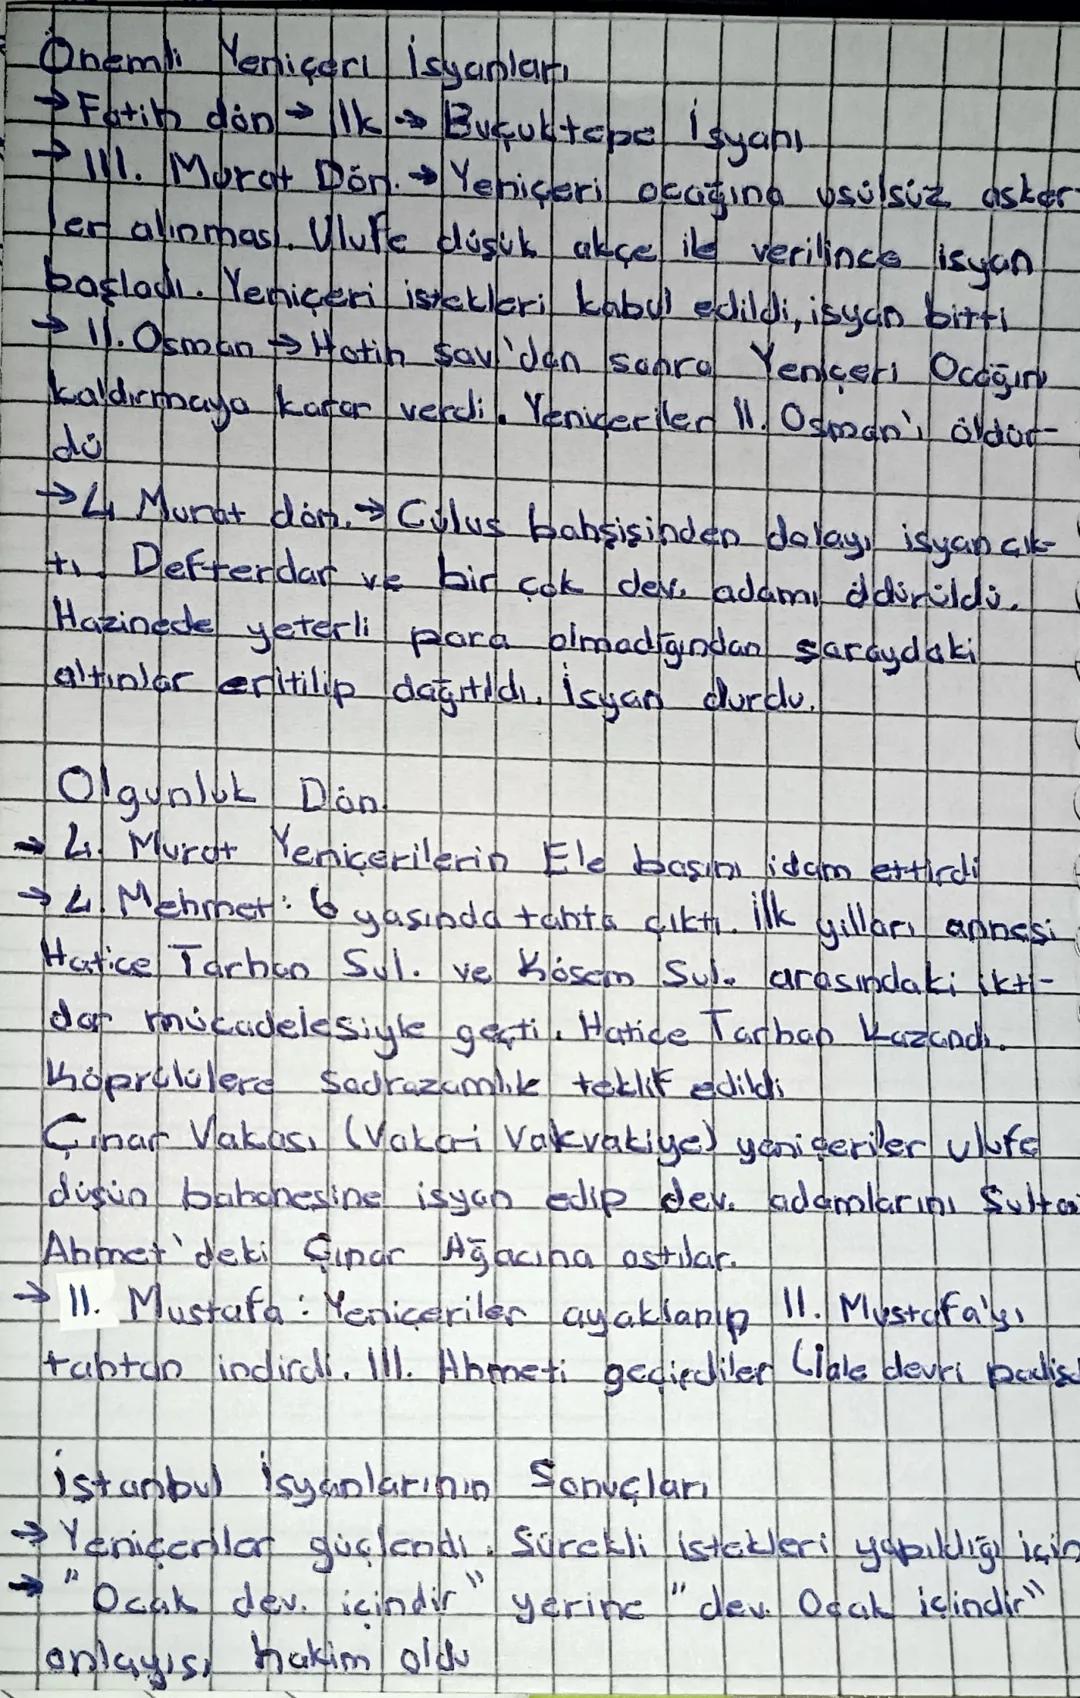 Önemli Yeniçeri İsyanları
→ Fatih dön → İlk → Buçuktepe İsyanı
→ III. Murat Dön. → Yeniçeri ocağına usülsüz asker-
ler alınması. Ulufe düşük akçe ile verilince isyan
başladı. Yeniçeri istekleri kabul edildi, isyan bitti
→ II. Osman → Hotin Sav'dan sonra Yeniçeri Ocağını
kaldırmaya karar verdi. Yeniçeriler II. Osman'ı öldür-
dü
→ 4. Murat dön. → Cülus bahşişinden dolayı isyan çık-
tı. Defterdar ve bir çok dev. adamı öldürüldü.
Hazinede yeterli para olmadığından saraydaki
altınlar eritilip dağıtıldı. İsyan durdu.
Olgunluk Dön.
→ 4. Murat Yeniçerilerin Ele başını idam ettirdi
→ 4. Mehmet: 6 yaşında tahta çıktı. İlk yılları annesi
Hatice Tarhan Sul. ve Kösem Sul. arasındaki ikti-
dar mücadelesiyle geçti. Hatice Tarhan kazandı.
Köprülülere Sadrazamlık teklif edildi
Çınar Vakası (Vakai Vakvakiye) yeniçeriler ulufe
düşün bahanesine isyan edip dev. adamlarını Sulta
Ahmet'deki Çınar Ağacına astılar.
→ II. Mustafa: Yeniçeriler ayaklanıp II. Mustafa'yı
tahtan indirdi. III. Ahmeti geçirdiler (lale devri padişa
İstanbul İsyanlarının Sonuçları
→ Yeniçeriler güçlendi. Sürekli istekleri yapıldığı için
→ "Ocak dev. içindir" yerine "dev. Ocak içindir"
anlayışı hakim oldu